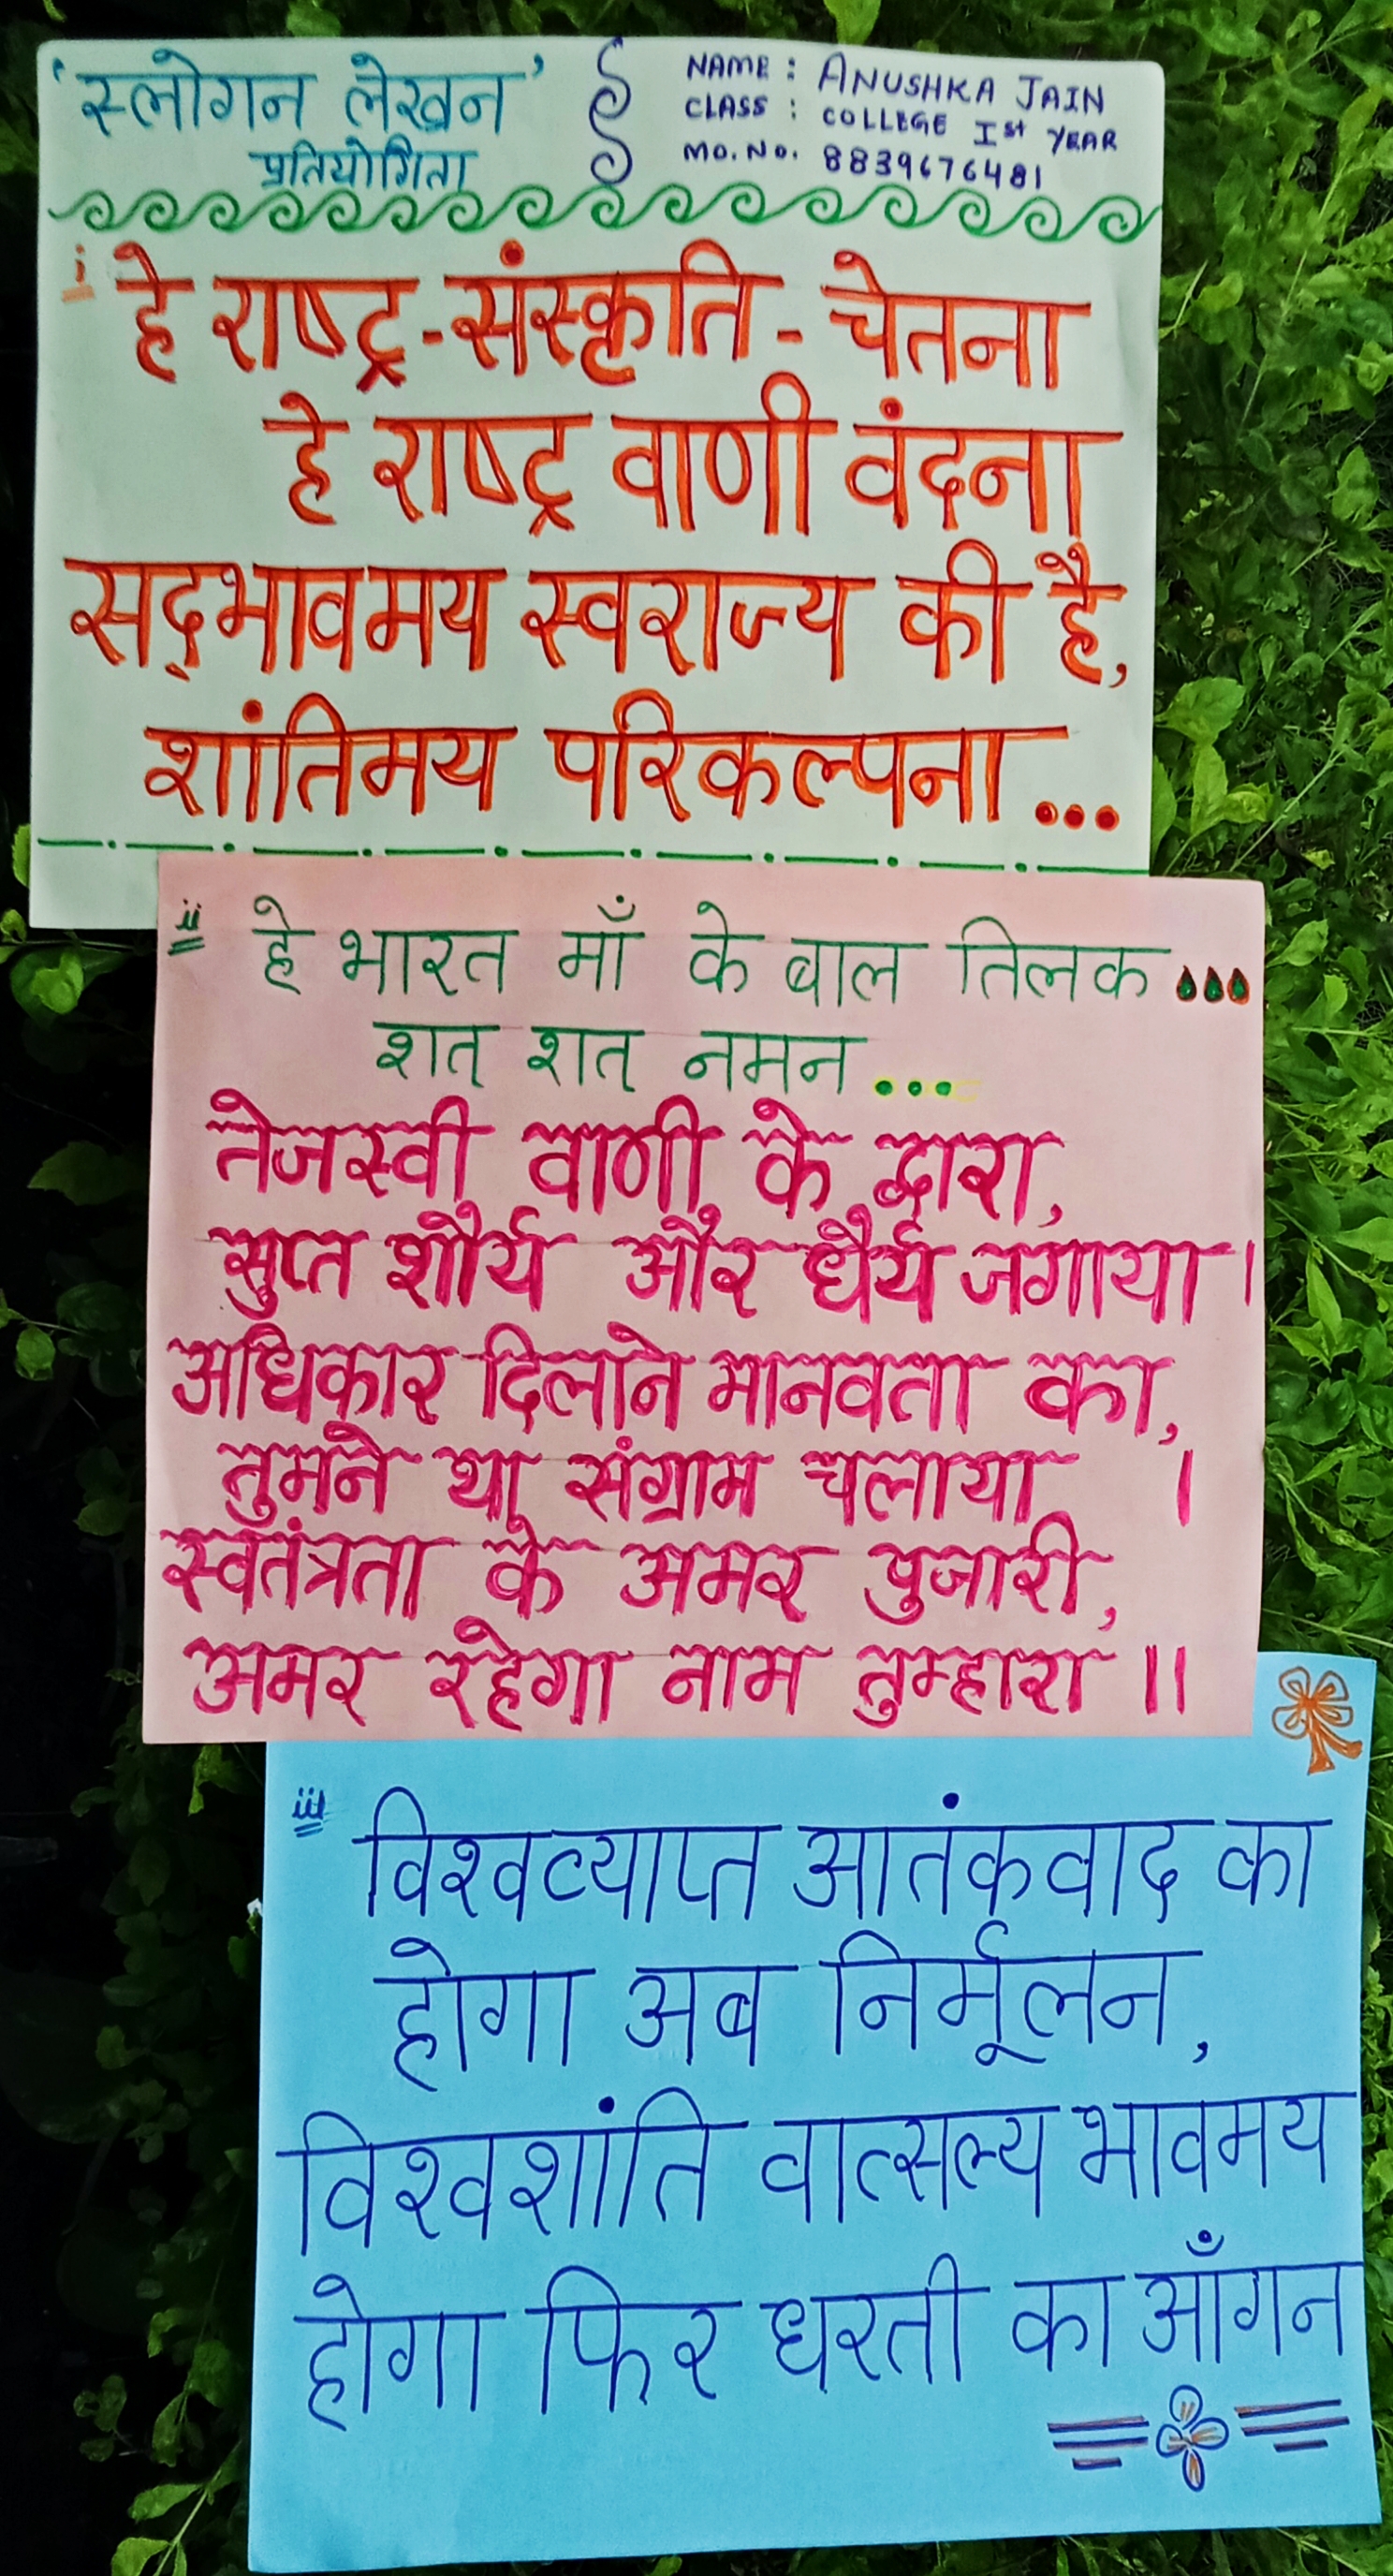 'स्लोगन लेखन'
प्रतियोगिता
NAME : ANUSHKA JAIN
CLASS : COLLEGE Ist YEAR
MO. NO. 8839676481
i हे राष्ट्र-संस्कृति - चेतना
हे राष्ट्र वाणी वंदना
सद्भावमय स्वराज्य की है,
शांतिमय परिकल्पना ...
ii हे भारत माँ के बाल तिलक ...
शत् शत् नमन ...
तेजस्वी वाणी के द्वारा,
सुप्त शौर्य और धैर्य जगाया ।
अधिकार दिलाने मानवता का,
तुमने था संग्राम चलाया ।
स्वतंत्रता के अमर पुजारी,
अमर रहेगा नाम तुम्हारा ।।
iii विश्वव्याप्त आतंकवाद का
होगा अब निर्मूलन,
विश्वशांति वात्सल्य भावमय
होगा फिर धरती का आँगन